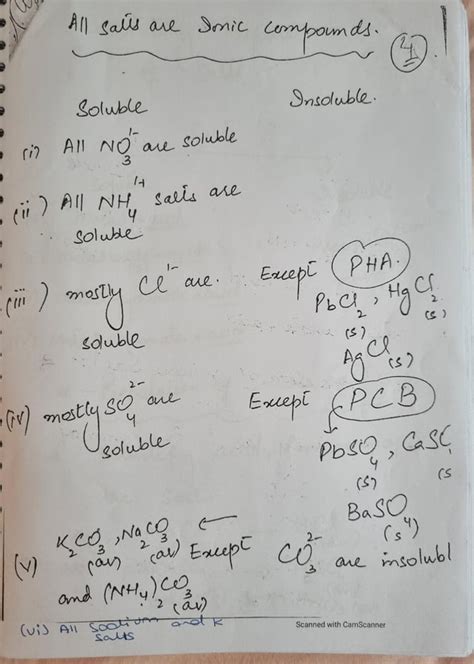 All salts are Ionic compounds.
4
Soluble Insoluble.
(i) All NO₃¹⁻ are soluble
(ii) All NH₄¹⁺ salts are
soluble
(iii) mostly Cl¹⁻ are. Except PHA.
soluble PbCl₂(s), HgCl₂(s)
AgCl(s)
(iv) mostly SO₄²⁻ are Except PCB
soluble PbSO₄(s), CaSO
(s
BaSO₄(s)
(v) K₂CO₃(aq), Na₂CO₃(aq) ← Except CO₃²⁻ are insolubl
and (NH₄)₂CO₃(aq)
(vi) All Sodium and K
salts
Scanned with CamScanner